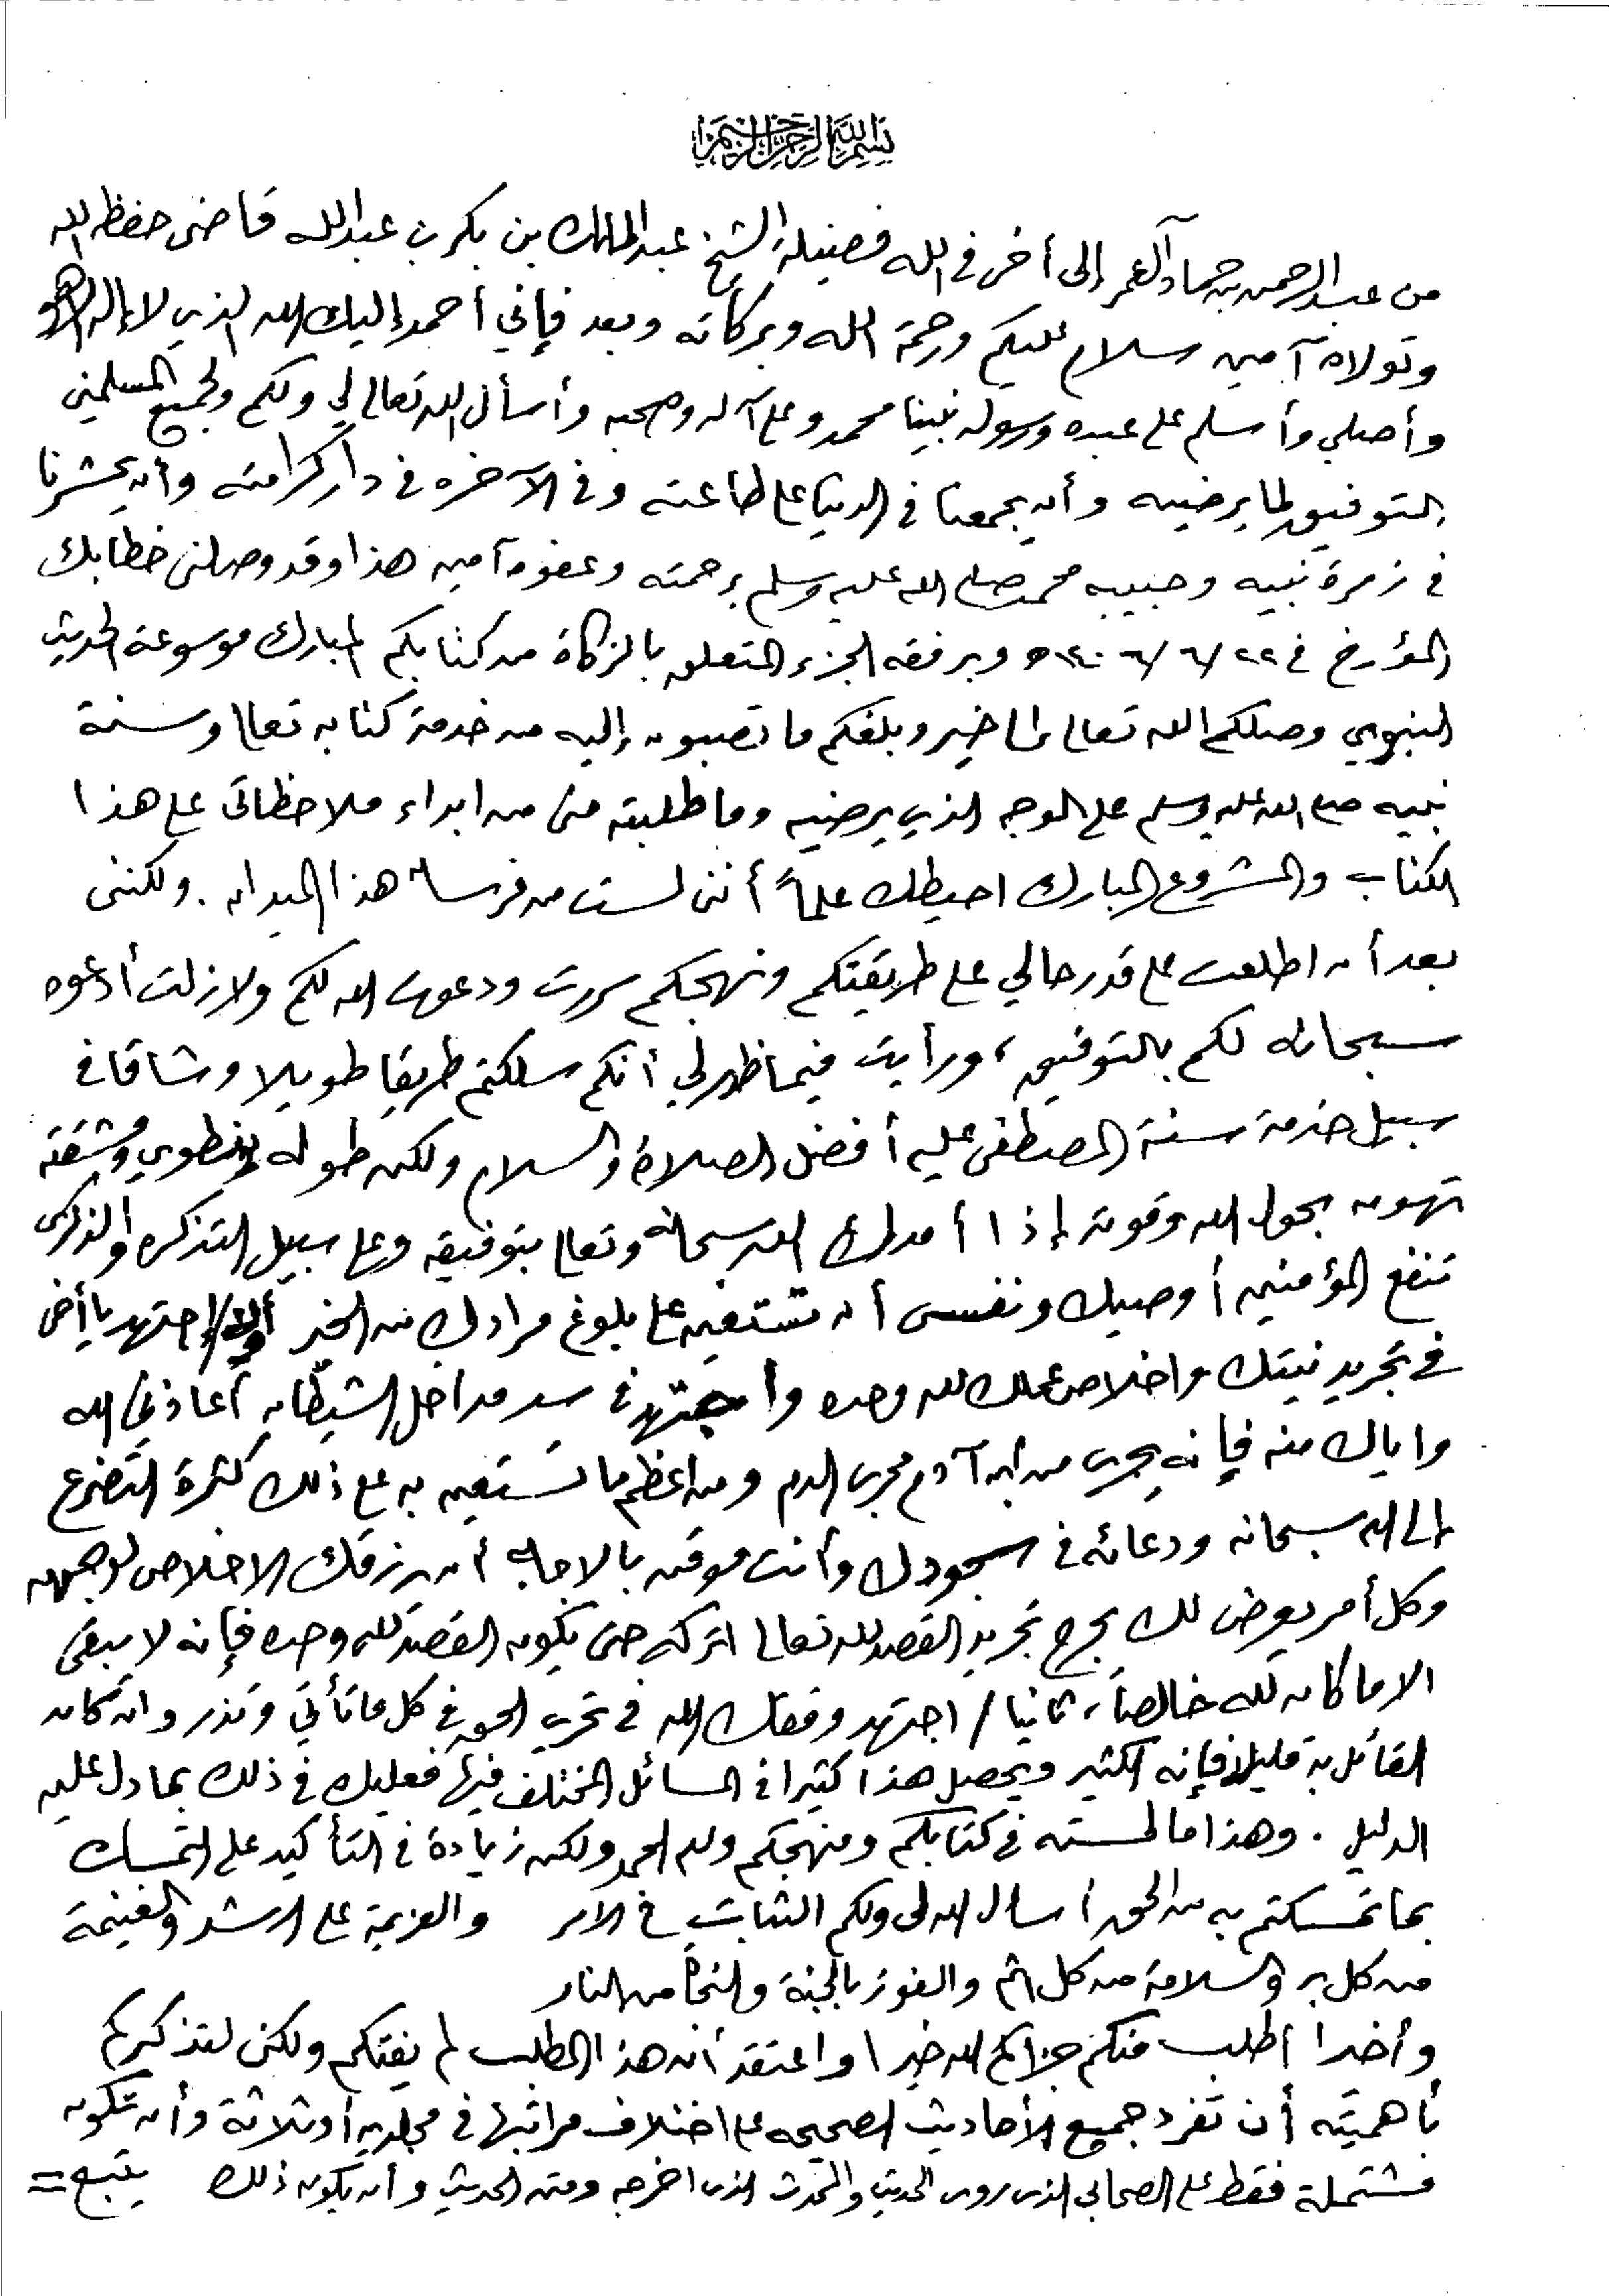 بسم الله الرحمن الرحيم
من عبد الرحمن بن حماد آل عمر إلى أخي في الله فضيلة الشيخ عبد الملك بن بكر بن عبد الله قاضي حفظه الله
وتولاه آمين سلام عليكم ورحمة الله وبركاته وبعد فإني أحمد إليك الله الذي لا إله إلا هو
وأصلي وأسلم على عبده ورسوله نبينا محمد وعلى آله وصحبه وأسأل الله تعالى لي ولكم ولجميع المسلمين
التوفيق لما يرضيه وأن يجمعنا في الدنيا على طاعته وفي الآخره في دار كرامته وأن يحشرنا
في زمرة نبيه وحبيبه محمد صلى الله عليه وسلم برحمته وعفوه آمين هذا وقد وصلني خطابك
المؤرخ في ٢٢/٦/ وبرفقه الجزء المتعلق بالزكاة من كتابكم المبارك موسوعة الحديث
النبوي وصلكم الله تعالى بالخير وبلغكم ما تصبون إليه من خدمة كتابه تعالى وسنة
نبيه صلى الله عليه وسلم على الوجه الذي يرضيه وما طلبته مني من ابداء ملاحظاتي على هذا
الكتاب والمشروع المبارك احيطك علماً أنني لست من فرسان هذا الميدان . ولكنني
بعد أن اطلعت على قدر حالي على طريقتكم ونهجكم سررت ودعوت الله لكم ولازلت أدعوه
سبحانه لكم بالتوفيق ، ورأيت فيما ظهر لي أنكم سلكتم طريقا طويلا وشاقا في
سبيل خدمة سنة المصطفى عليه أفضل الصلاة والسلام ولكن طوله ينطوي ومشقته
تهون بحول الله وقوته إذا أمدك الله سبحانه وتعالى بتوفيقه وعلى سبيل التذكره والذكرى
تنفع المؤمنين أوصيك ونفسي أن تستعين على بلوغ مرادك من الخير أولا/ إجتهد يا أخي
في تجريد نيتك واخلاص عملك لله وحده واجتهد في سد مداخل الشيطان أعاذني الله
واياك منه فإنه يجري من ابن آدم مجرى الدم ومن اعظم ما تستعين به على ذلك كثرة التضرع
إلى الله سبحانه ودعائه في سجودك وأنت موقن بالاجابه أن يرزقك الاخلاص لوجهه
وكل أمر يعرض لك يجرح تجريد القصد لله تعالى اتركه حتى يكون القصد لله وحده فإنه لا يبقى
الا ما كان لله خالصاً ، ثانيا / اجتهد وفقك الله في تحري الحق في كل ما تأتي وتذر وان كان
القائل به قليلا فإنه الكثير ويحصل هذا كثيرا في المسائل المختلف فيها فعليك في ذلك بما دل عليه
الدليل . وهذا ما لمسته في كتابكم ومنهجكم ولله الحمد ولكن زيادة في التأكيد على التمسك
بما تمسكتم به من الحق أسال الله لي ولكم الثبات في الأمر والعزيمة على الرشد والغنيمة
من كل بر والسلامة من كل اثم والفوز بالجنة والنجاة من النار
وأخيرا أطلب منكم جزاكم الله خيرا واعتقد أن هذا المطلب لم يفتكم ولكن لتذكيركم
بأهميته أن تفرد جميع الأحاديث الصحيحه على اختلاف مراتبها في مجلدين أو ثلاثة وأن تكون
مشتملة فقط على الصحابي الذي روى الحديث والمحدث الذي اخرجه ومتن الحديث وأن يكون ذلك يتبع =